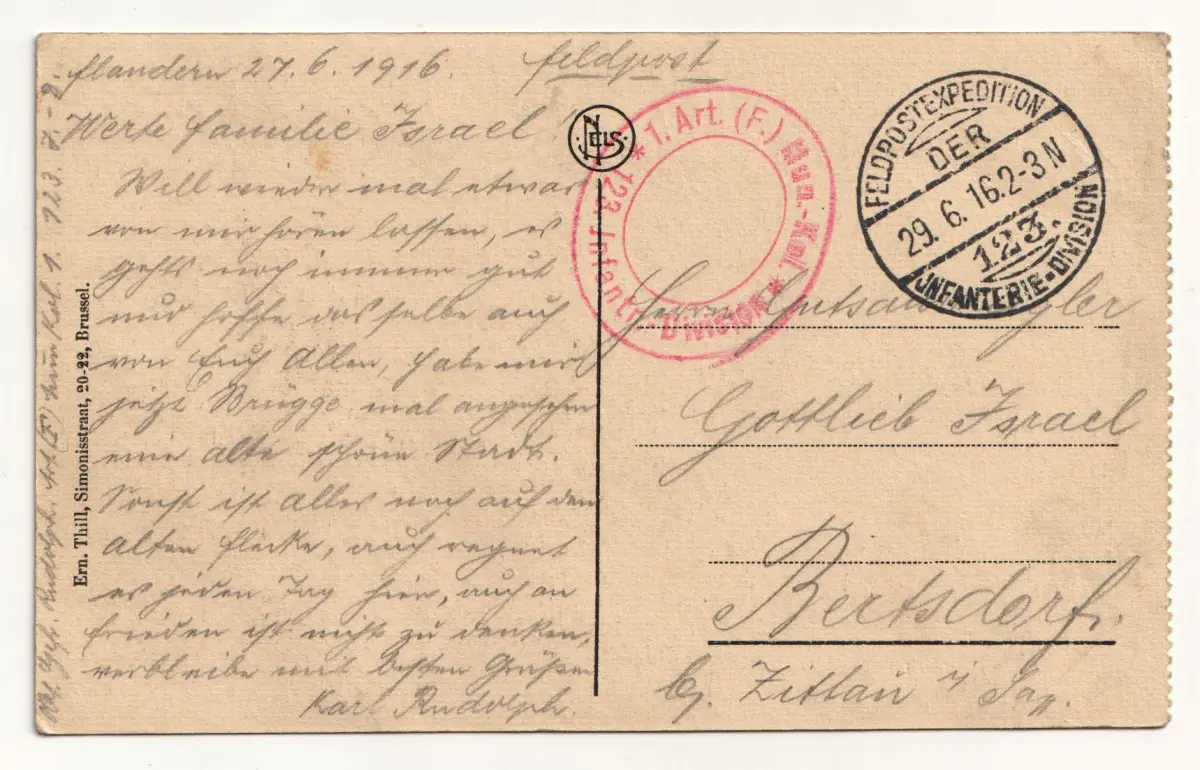 Flandern 27.6.1916. Feldpost
Werte Familie Israel
Will wieder mal etwas
von mir hören lassen, es
gehts noch immer gut
und hoffe dasselbe auch
von Euch Allen, habe mir
jetzt Brügge mal angesehen
eine alte schöne Stadt.
Sonst ist alles noch auf dem
alten Flecke, auch regnet
es jeden Tag hier, auch an
Frieden ist nicht zu denken,
verbleibe mit besten Grüßen
Karl Rudolph.
Rudolph. Art. (F) Mun Kol. 1. 123. J.-D.
Ern. Thill, Simonisstraat, 20-22, Brussel.
NELS
* 1. Art. (F.) Mun.-Kol *
123. Infantr.-Division
FELDPOSTEXPEDITION
DER
29. 6. 16. 2-3 N
123.
INFANTERIE-DIVISION
Herrn
Gottlieb Israel
Bertsdorf.
b/. Zittau i/ Sa.